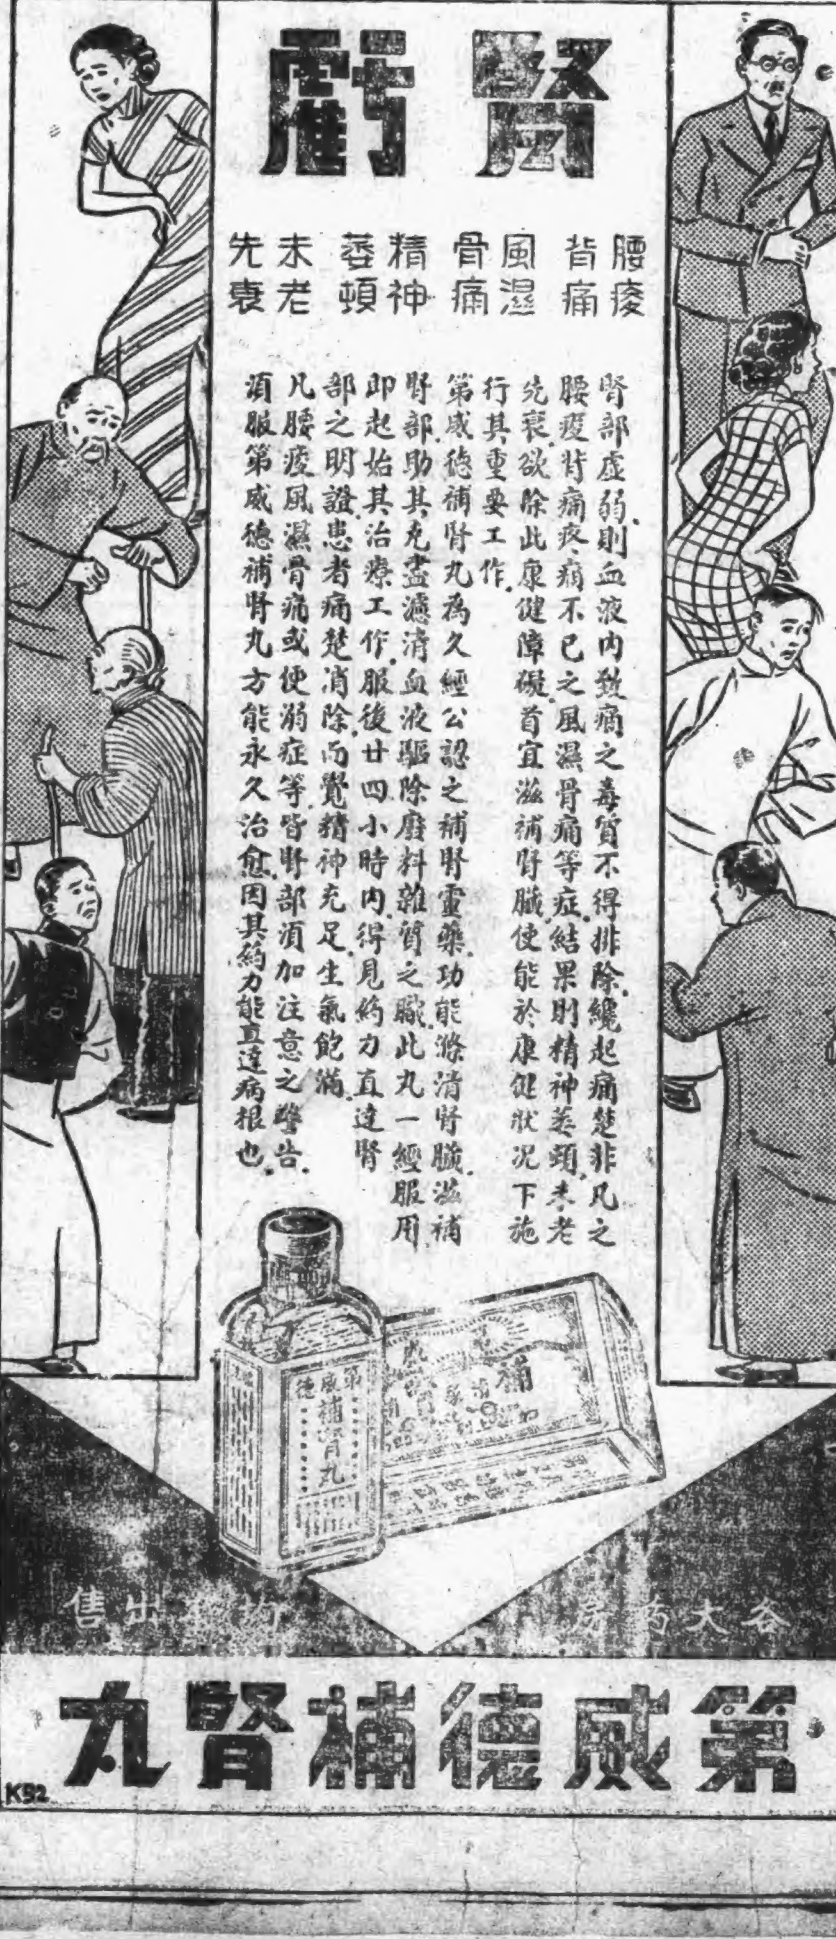 腎虧
腰痠
背痛
風濕
骨痛
精神
萎頓
未老
先衰
腎部虛弱.則血液內致痛之毒質不得排除.纔起痛楚非凡之
腰痠背痛疼痛不已之風濕骨痛等症.結果則精神萎頓.未老
先衰.欲除此康健障礙.首宜滋補腎臟使能於康健狀況下施
行其重要工作.
第威德補腎丸為久經公認之補腎靈藥.功能滌清腎臟.滋補
腎部.助其充盡濾清血液驅除廢料雜質之職.此丸一經服用.
即起始其治療工作.服後廿四小時內.得見药力直達腎
部之明證.患者痛楚消除.而覺精神充足.生氣飽滿.
凡腰痠風濕骨痛或便溺症等.皆腎部須加注意之警告.
須服第威德補腎丸方能永久治愈.因其药力能直達病根也.
第威德
補腎丸
補
各大药房
均有出售
第威德補腎丸
K52